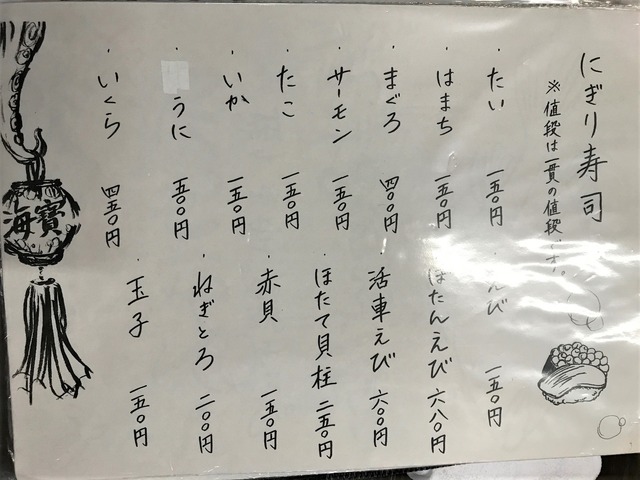 にぎり寿司
※値段は一貫の値段です。
・たい 一五〇円
・はまち 一五〇円
・まぐろ 四〇〇円
・サーモン 一五〇円
・たこ 一五〇円
・いか 一五〇円
・うに 五〇〇円
・いくら 四五〇円
・えび 一五〇円
・ぼたんえび 六八〇円
・活車えび 六〇〇円
・ほたて貝柱 二五〇円
・赤貝 一五〇円
・ねぎとろ 二〇〇円
・玉子 一五〇円
海寶